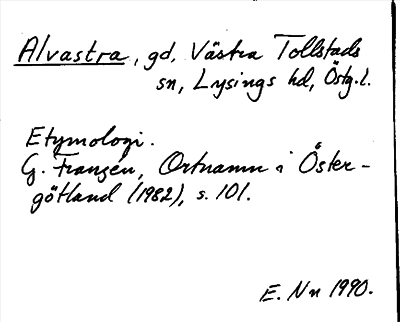 Alvastra, gd, Västra Tollstads
sn, Lysings hd, Östg.l.
Etymologi.
G. Franzén, Ortnamn i Öster-
götland (1982), s. 101.
E. Nn 1990.